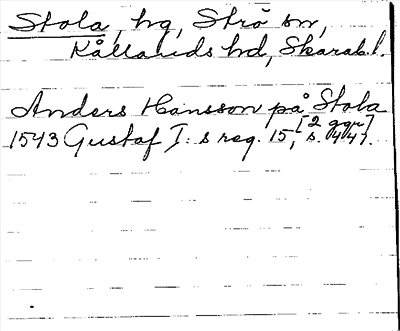 Stola, hg, Strö sn,
Kållands hd, Skarab.l.
Anders Hansson på Stola
[2 ggr]
1543 Gustaf I:s reg. 15, s. 447.